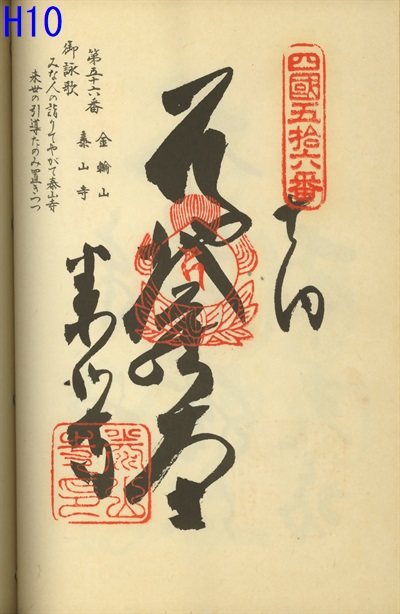 H10
四國五拾六番
奉納
泰山寺
第五十六番 金輪山
泰山寺
御詠歌
みな人の詣りてやがて泰山寺
来世の引導たのみ置きつつ